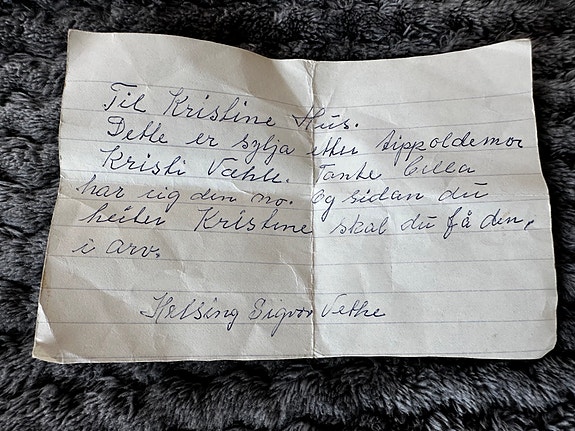 Til Kristine Hus.
Dette er sylja etter tippoldemor
Kristi Vethe. Tante Cilla
har eig den no. Og sidan du
heiter Kristine skal du få den,
i arv.
Helsing Sigvor Vethe